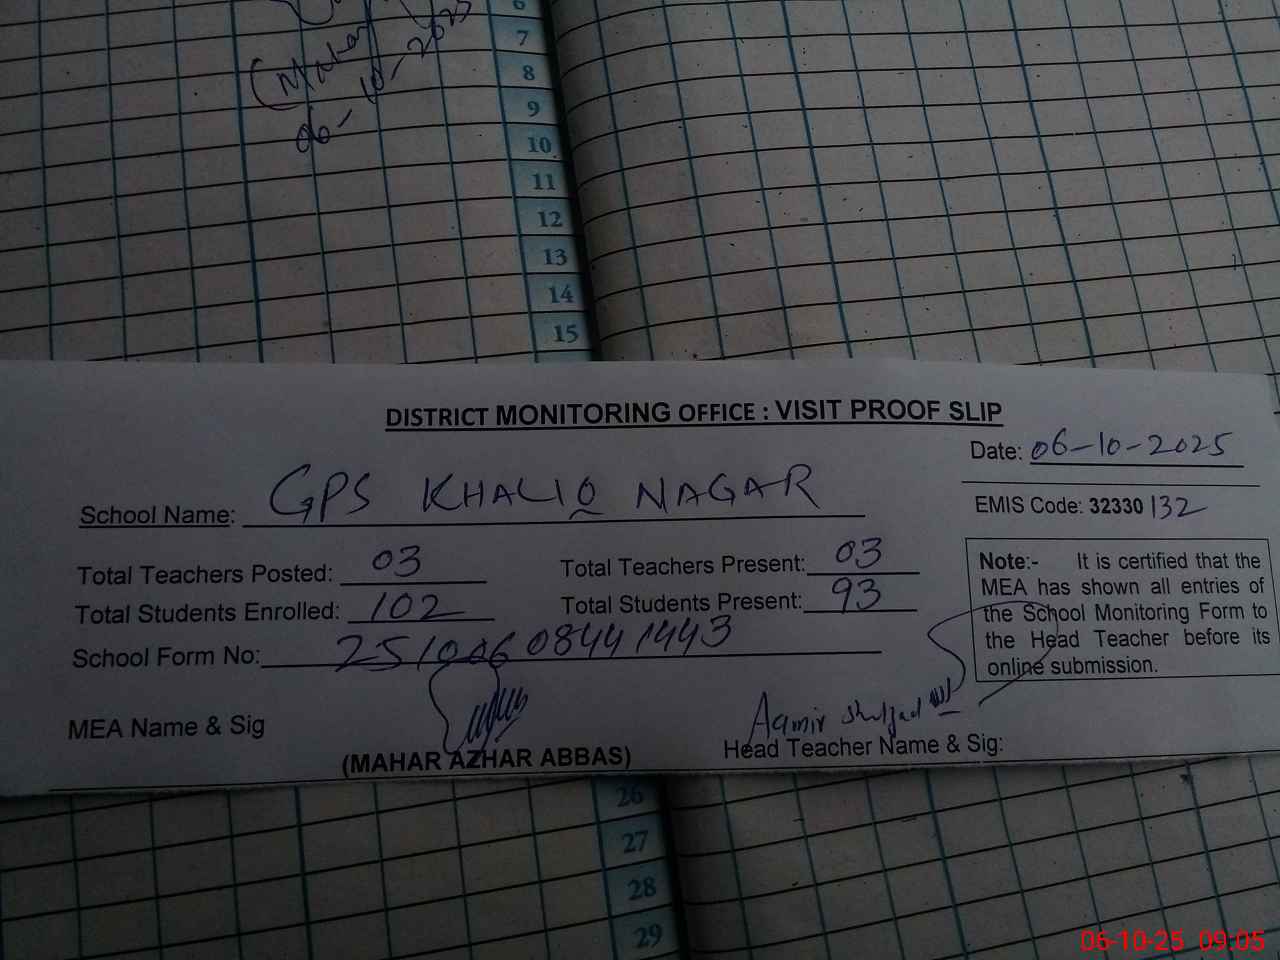 6
7
8
9
10
11
12
13
14
15
(Mahar
06-10-2025
DISTRICT MONITORING OFFICE : VISIT PROOF SLIP
Date: 06-10-2025
School Name: GPS KHALIQ NAGAR
EMIS Code: 32330132
Total Teachers Posted: 03 Total Teachers Present: 03
Total Students Enrolled: 102 Total Students Present: 93
School Form No: 25100608441443
Note:- It is certified that the
MEA has shown all entries of
the School Monitoring Form to
the Head Teacher before its
online submission.
MEA Name & Sig
(MAHAR AZHAR ABBAS)
Aamir
Head Teacher Name & Sig:
26
27
28
29
06-10-25 09:05